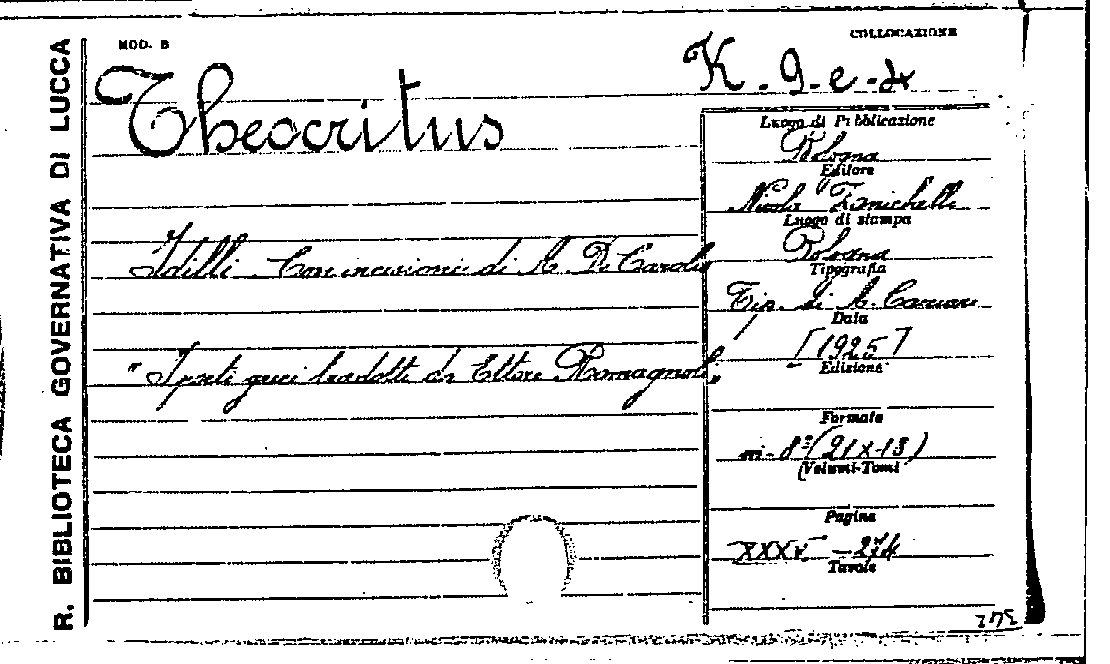 R. BIBLIOTECA GOVERNATIVA DI LUCCA
MOD. B
COLLOCAZIONE
K. 9. e. 24
Theocritus
Idilli. Con incisioni di A. De Carolis
"I poeti greci tradotti da Ettore Romagnoli"
Luogo di Pubblicazione
Bologna
Editore
Nicola Zanichelli
Luogo di stampa
Bologna
Tipografia
Tip. di A. Cacciari
Data
[1925]
Edizione
Formato
in-8º (21x13)
(Volumi-Tomi
Pagine
XXXV - 274
Tavole